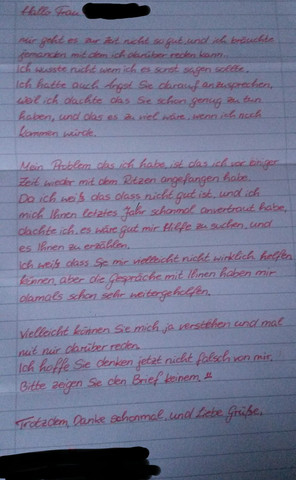 Hallo Frau
Mir geht es zur Zeit nicht so gut und ich bräuchte
jemanden mit dem ich darüber reden kann.
Ich wusste nicht wem ich es sonst sagen sollte.
Ich hatte auch Angst Sie darauf anzusprechen,
weil ich dachte das Sie schon genug zu tun
haben, und das es zu viel wäre wenn ich noch
kommen würde.
Mein Problem das ich habe ist das ich vor einiger
Zeit wieder mit dem Ritzen angefangen habe.
Da ich weiß das dass nicht gut ist, und ich
mich Ihnen letztes Jahr schonmal anvertraut habe,
dachte ich, es wäre gut mir Hilfe zu suchen, und
es Ihnen zu erzählen.
Ich weiß dass Sie mir vielleicht nicht wirklich helfen
können, aber die Gespräche mit Ihnen haben mir
damals schon sehr weitergeholfen.
Vielleicht können Sie mich ja verstehen und mal
mit mir darüber reden.
Ich hoffe Sie denken jetzt nicht falsch von mir.
Bitte zeigen Sie den Brief keinem.
Trotzdem Danke schonmal, und Liebe Grüße,